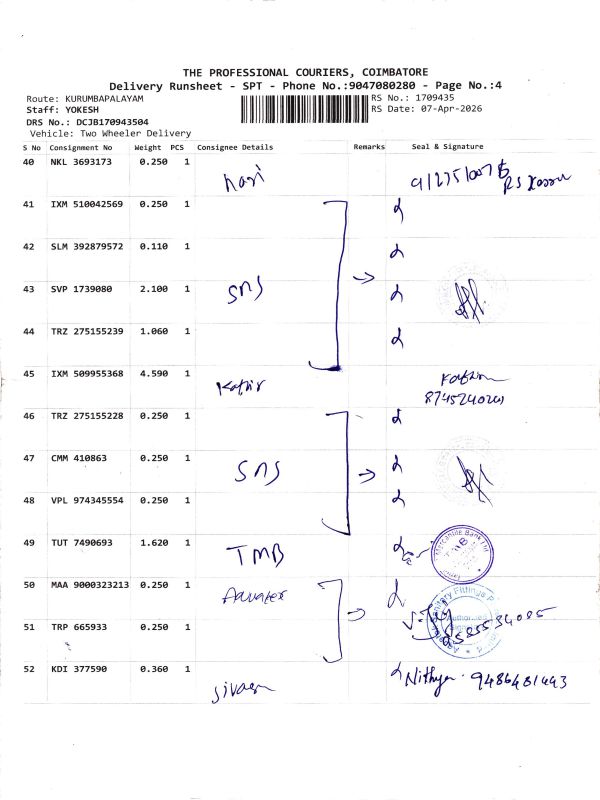 THE PROFESSIONAL COURIERS, COIMBATORE
Delivery Runsheet - SPT - Phone No.:9047080280 - Page No.:4
Route: KURUMBAPALAYAM RS No.: 1709435
Staff: YOKESH RS Date: 07-Apr-2026
DRS No.: DCJB170943504
Vehicle: Two Wheeler Delivery
S No Consignment No Weight PCS Consignee Details Remarks Seal & Signature
40 NKL 3693173 0.250 1
41 IXM 510042569 0.250 1
42 SLM 392879572 0.110 1
43 SVP 1739080 2.100 1 SNS
44 TRZ 275155239 1.060 1
45 IXM 509955368 4.590 1 Kathir
46 TRZ 275155228 0.250 1
47 CMM 410863 0.250 1 SNS
48 VPL 974345554 0.250 1
49 TUT 7490693 1.620 1 TMB
50 MAA 9000323213 0.250 1
51 TRP 665933 0.250 1
52 KDI 377590 0.360 1 Nithya. 9486481443